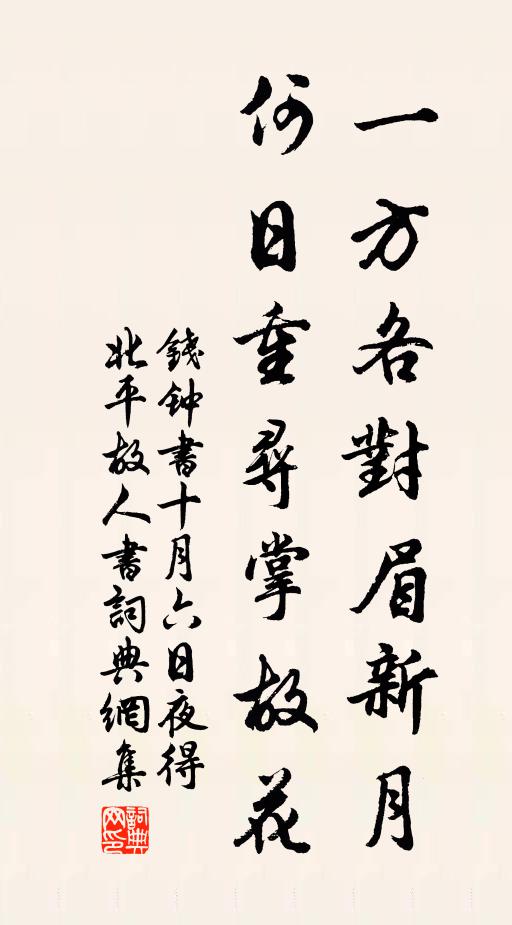 一方各對眉新月
何日重尋掌故花
錢鈡書十月六日夜得
北平故人書詞典網集
詞典
网印